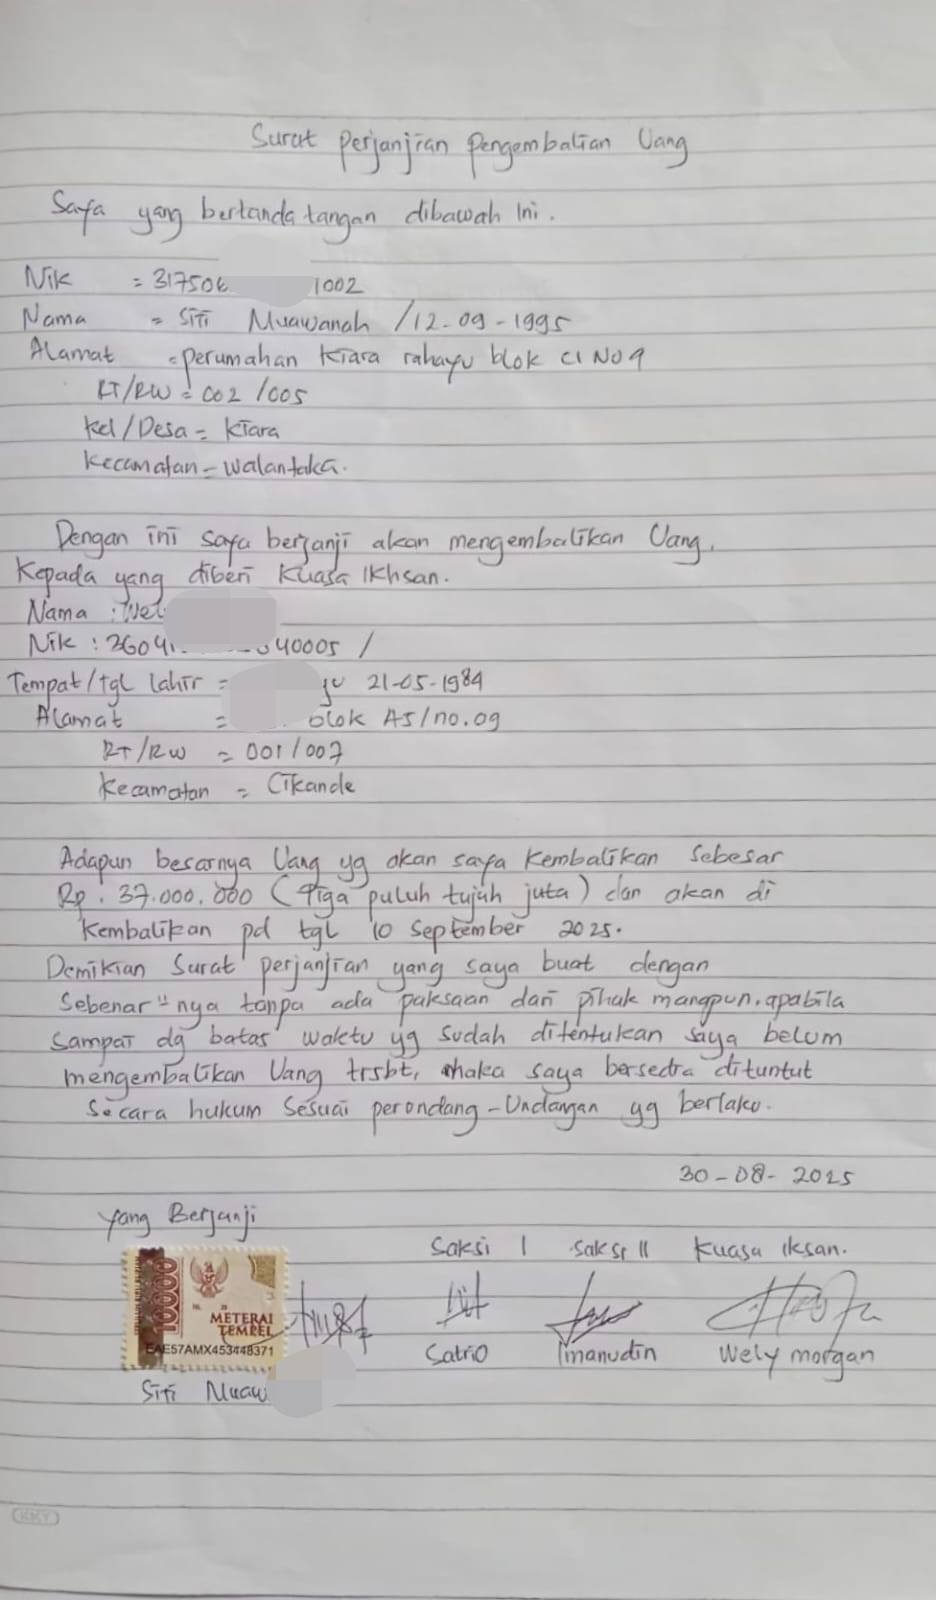 Surat Perjanjian Pengembalian Uang
Saya yang bertanda tangan dibawah Ini.
Nik = 317506 1002
Nama = Siti Muawanah / 12-09-1995
Alamat = perumahan Kiara rahayu blok C1 NO9
RT/RW = 002 /005
Kel/Desa = Kiara
Kecamatan = Walantaka.
Dengan ini saya berjanji akan mengembalikan Uang.
Kepada yang diberi Kuasa Ikhsan.
Nama : Wel
Nik : 3604 40005 /
Tempat/tgl lahir = 21-05-1984
Alamat = blok A5/no.09
RT/RW = 001/007
Kecamatan = Cikande
Adapun besarnya Uang yg akan saya Kembalikan Sebesar
Rp. 37.000.000 (Tiga puluh tujuh juta) dan akan di
Kembalikan pd tgl 10 September 2025.
Demikian Surat perjanjian yang saya buat dengan
Sebenar"nya tanpa ada paksaan dari pihak mangpun. apabila
Sampai dg batas waktu yg sudah ditentukan saya belum
mengembalikan Uang trsbt, maka saya bersedia dituntut
Secara hukum Sesuai perondang-Undangan yg berlaku.
30-08-2025
Yang Berjanji
Saksi I Saksi II Kuasa Iksan.
10000
METERAI
TEMPEL
EAE57AMX453448371
Satrio Imanudin Wely morgan
Siti Muaw
KKY